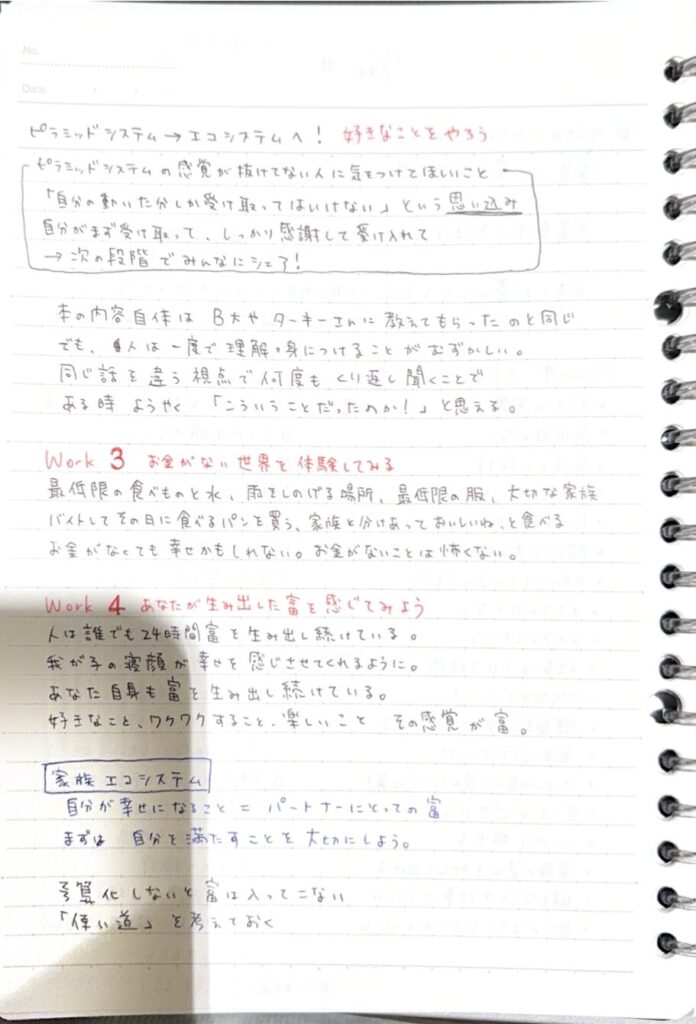 No.
Date
ピラミッドシステム→エコシステムへ! 好きなことをやろう
ピラミッドシステムの感覚が抜けてない人に気をつけてほしいこと
「自分の動いた分しか受け取ってはいけない」という思い込み
自分がまず受け取って、しっかり感謝して受け入れて
→次の段階でみんなにシェア!
本の内容自体はB大やターキーさんに教えてもらったのと同じ
でも、人は一度で理解→身につけることがむずかしい。
同じ話を違う視点で何度もくり返し聞くことで
ある時ようやく「こういうことだったのか!」と思える。
Work 3 お金がない世界を体験してみる
最低限の食べものと水、雨をしのげる場所、最低限の服、大切な家族
バイトしてその日に食べるパンを買う、家族と分けあっておいしいね、と食べる
お金がなくても幸せかもしれない。お金がないことは怖くない。
Work 4 あなたが生み出した富を感じてみよう
人は誰でも24時間富を生み出し続けている。
我が子の寝顔が幸せを感じさせてくれるように。
あなた自身も富を生み出し続けている。
好きなこと、ワクワクすること、楽しいこと その感覚が富。
家族エコシステム
自分が幸せになること=パートナーにとっての富
まずは 自分を満たすことを大切にしよう。
予算化しないと富は入ってこない
「使い道」を考えておく